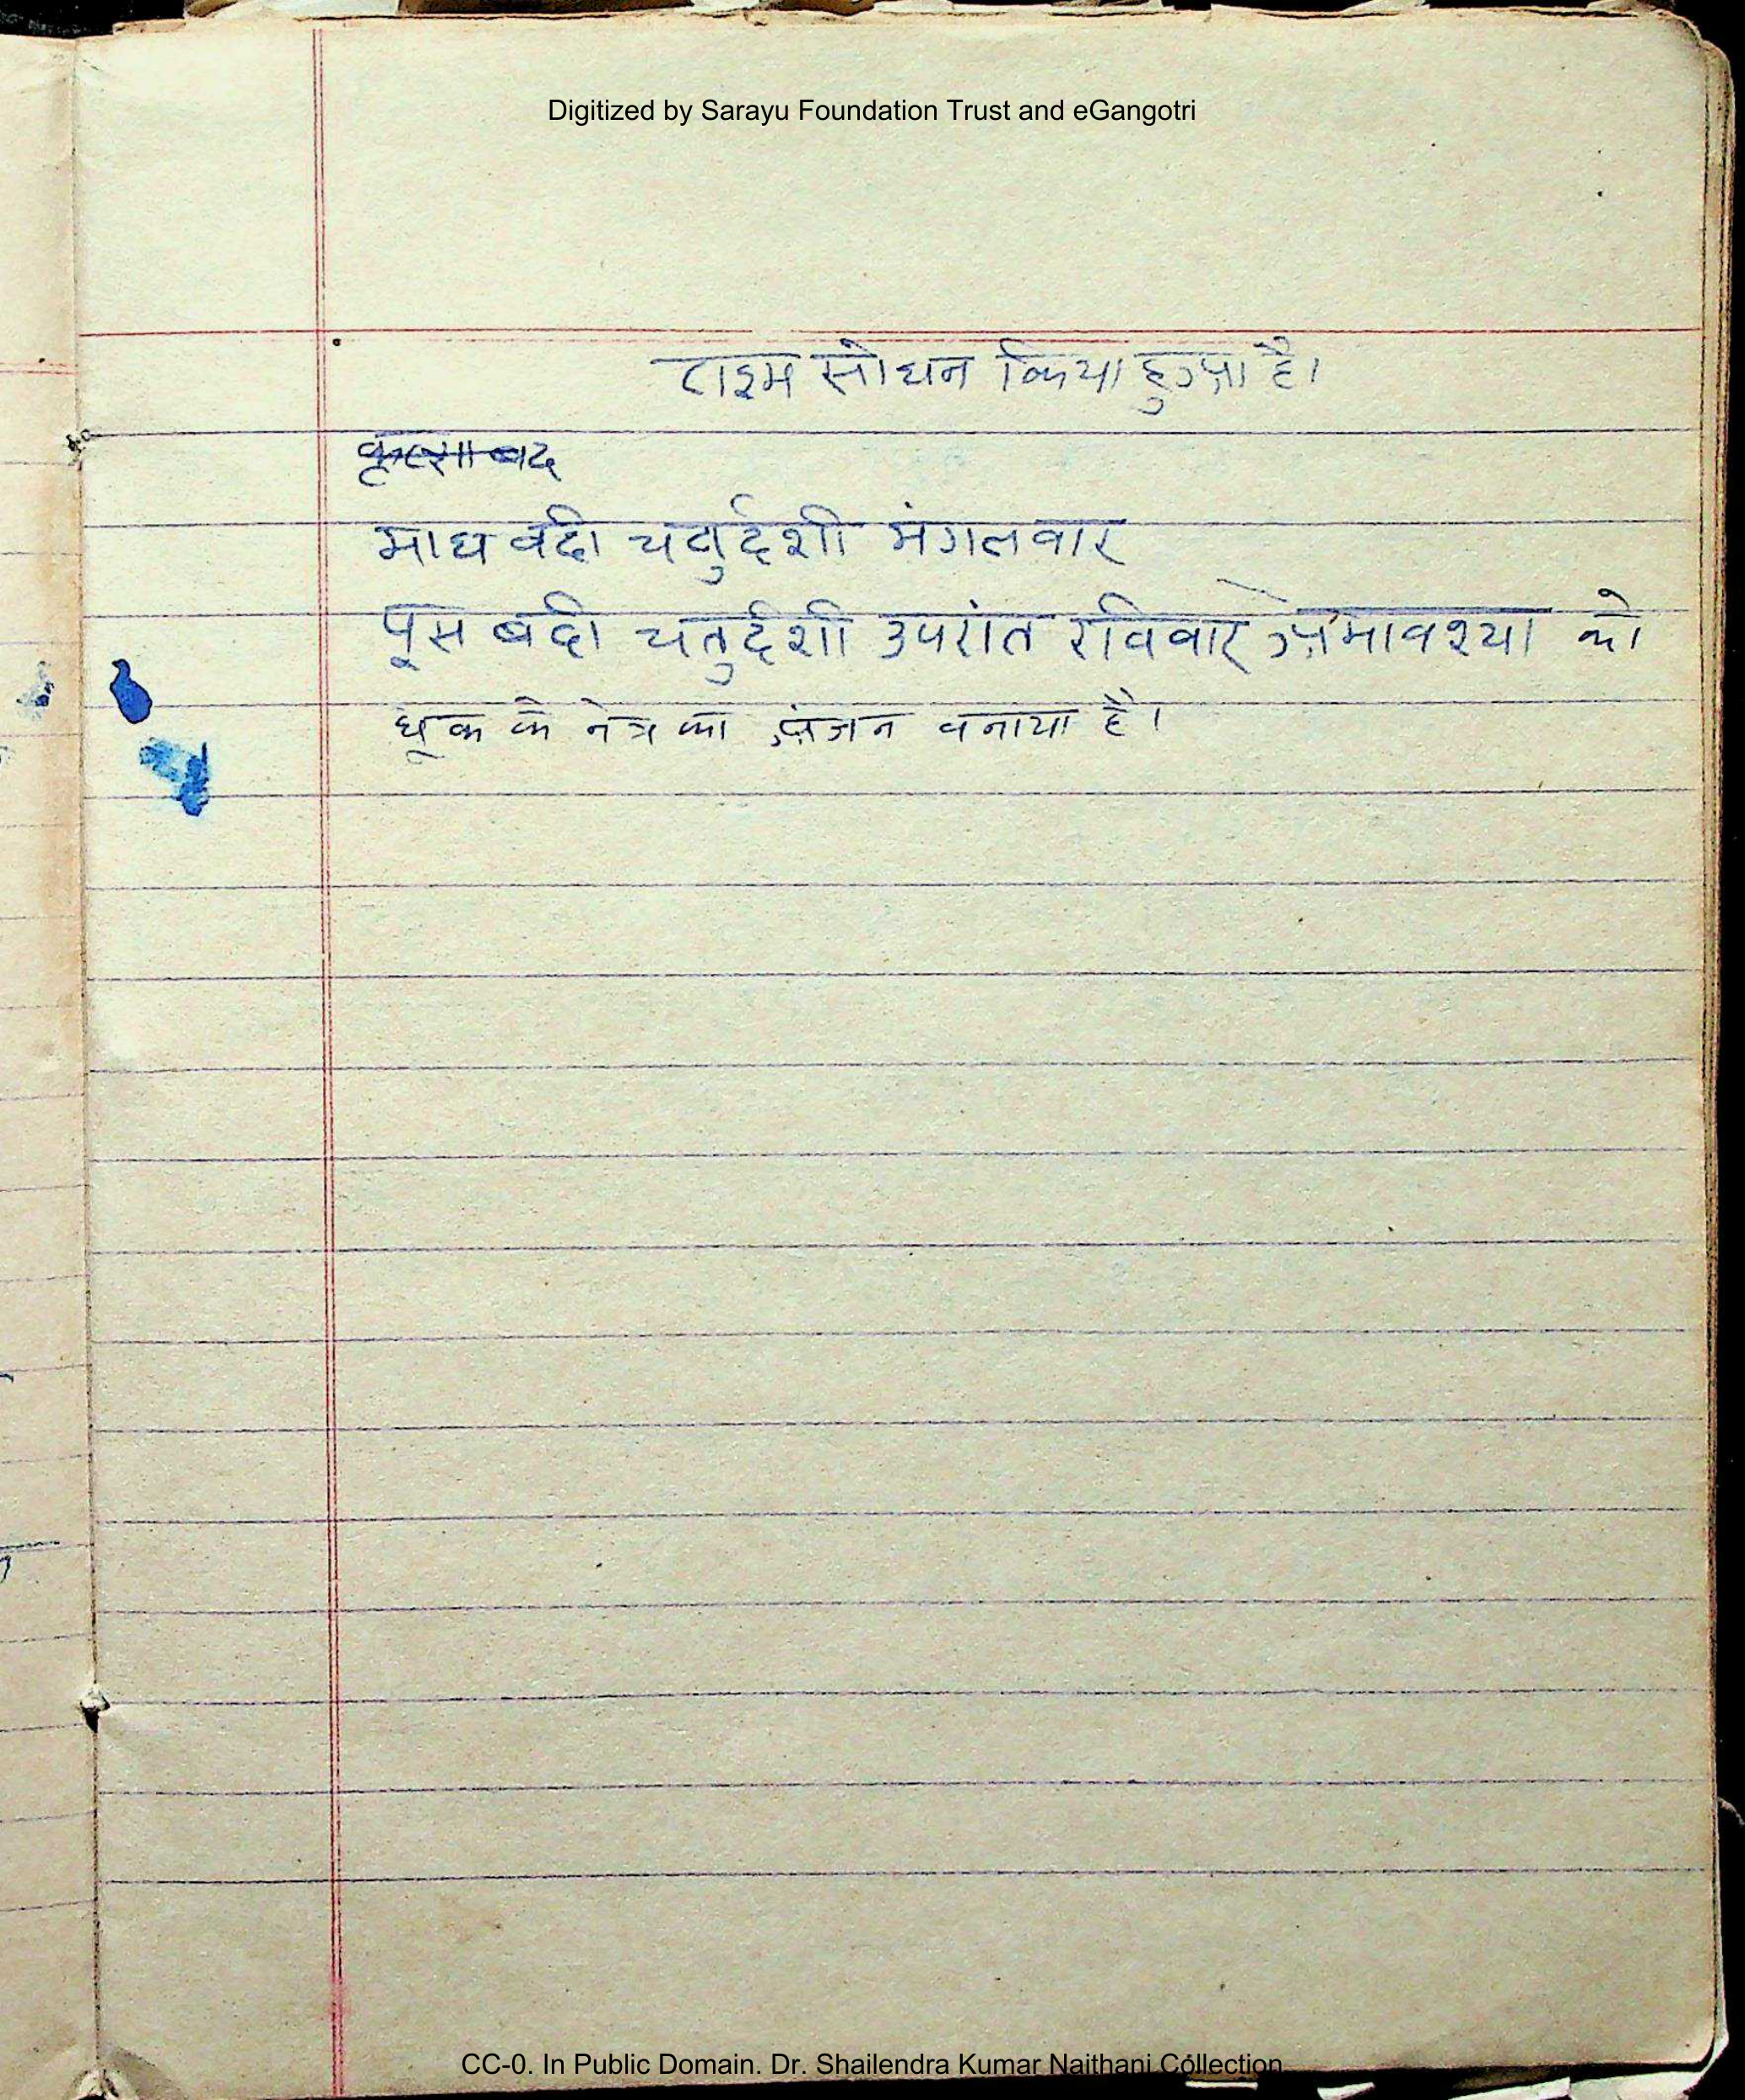 Digitized by Sarayu Foundation Trust and eGangotri
टाइम सोधन किया हुआ है।
माघ वदी चतुर्दशी मंगलवार
पूस बदी चतुर्दशी उपरांत रविवार अमावश्या को
घूक के नेत्र का अंजन वनाया है।
CC-0. In Public Domain. Dr. Shailendra Kumar Naithani Collection